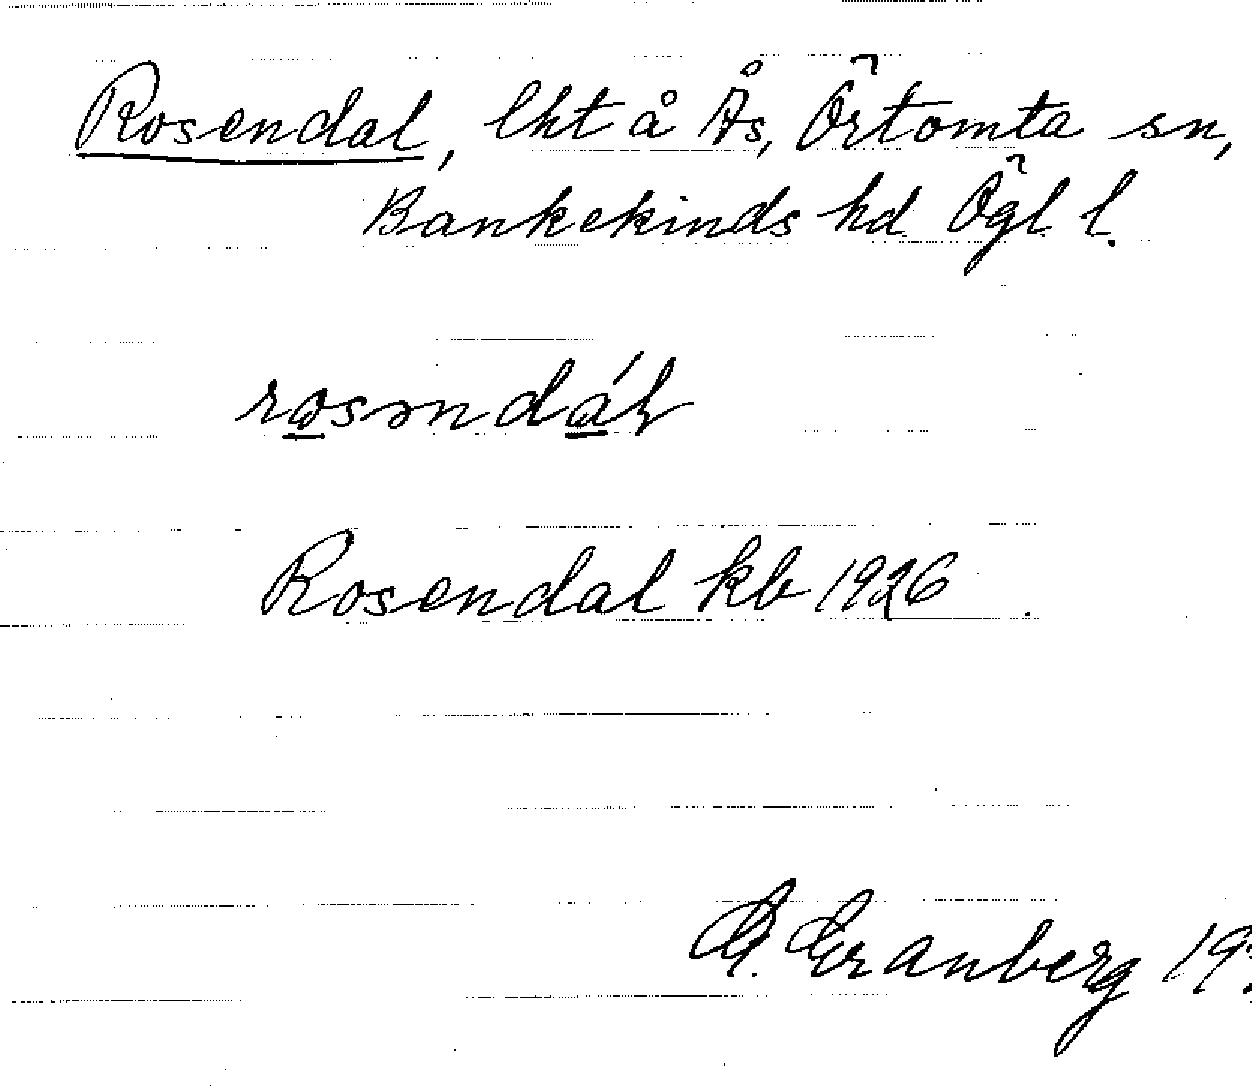 Rosendal, lht å Ås, Örtomta sn,
Bankekinds hd Ögl l.
rosəndál
Rosendal kb 1926
G. Granberg 19